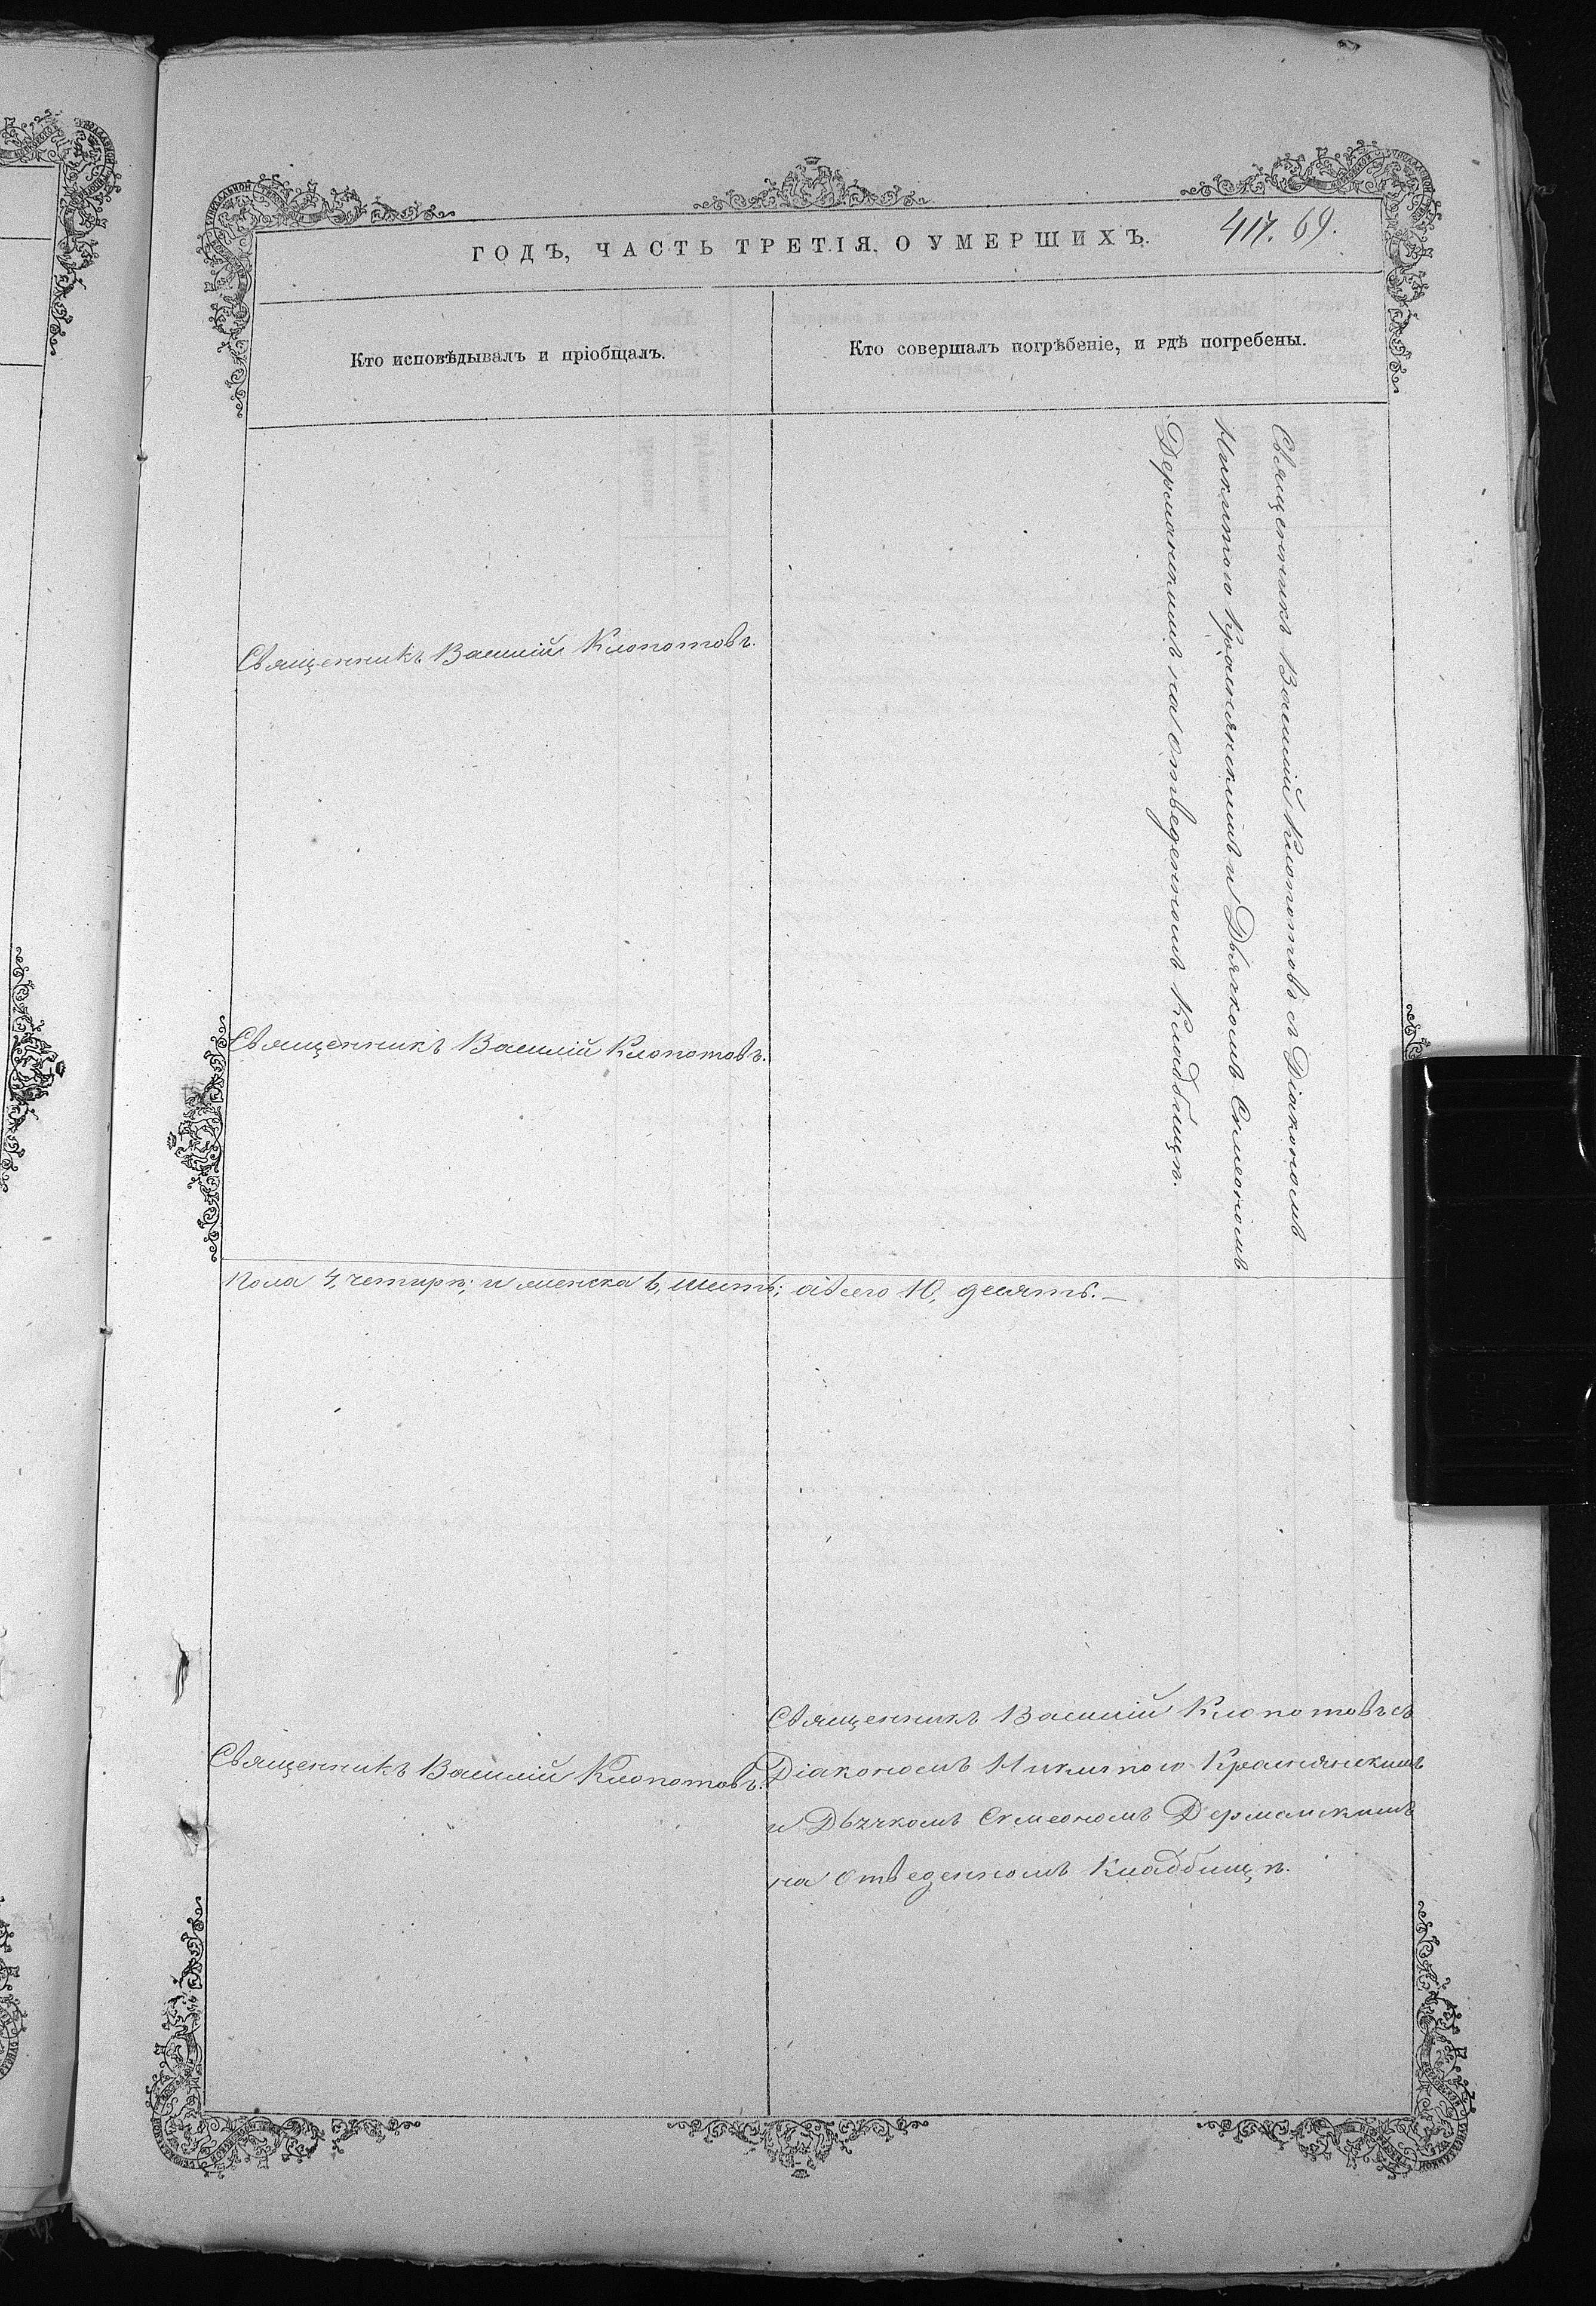 ГОДЪ, ЧАСТЬ ТРЕТІЯ, О УМЕРШИХЪ.
417. 69.
Кто исповѣдывалъ и пріобщалъ.
Кто совершалъ погрѣбеніе, и гдѣ погребены.
Священникъ Василій Клопотовъ.
Священникъ Василій Клопотовъ.
Священникъ Василій Клопотовъ съ Діакономъ
Никитою Крамянскимъ и Дьячкомъ Симеономъ
Дерманскимъ на отведенномъ Кладбищѣ.
пола 4, четырѣ; и женска 6, шесть; а всего 10, десять.—
Священникъ Василій Клопотовъ.
Священникъ Василій Клопотовъ съ
Діакономъ Никитою Крамянскимъ
и Дьячкомъ Симеономъ Дерманскимъ
на отведенномъ Кладбищѣ.